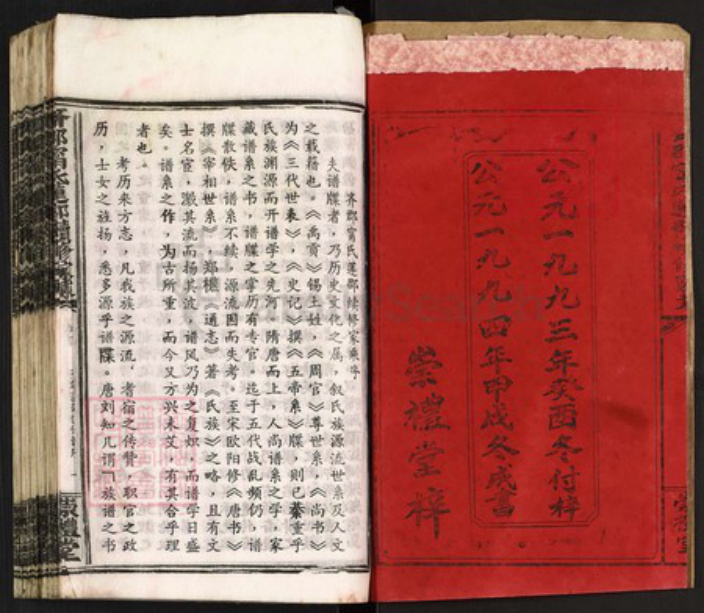 公元一九九三年癸酉冬付梓
公元一九九四年甲戌冬成書
崇禮堂梓
齐郡甯氏蓬邨续修家乘序
夫谱牒者，乃历史文化之属，叙民族源流世系及人文
之载籍也。《禹贡》锡土姓，《周官》尊世系，《尚书》
为《三代世表》，《史记》撰《五帝系》牒，则已綦重乎
民族渊源而开谱学之先河。隋唐而上，人尚谱系之学，家
藏谱系之书，谱牒之掌历有专官。迄于五代战乱频仍，谱
牒散佚，谱系不续，源流因而失考。至宋欧阳修《唐书》
撰《宰相世系》，郑樵《通志》著《民族》之略，且有文
士名宦，激其流而扬其波，谱风乃为之复炽，而谱学日盛
矣。谱系之作，为古所重，而今又方兴未艾，有其合乎理
者也。
考历来方志，凡我族之源流，耆宿之传赞，职官之政
历，士女之旌扬，悉多源乎谱牒。唐刘知几谓「族谱之书
崇禮堂